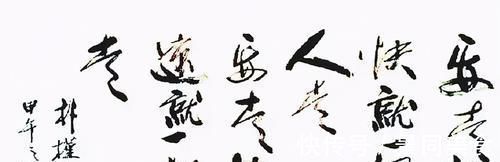 要走
快就一
人走
要走
遠就一
走
朴槿
甲午之
快传号